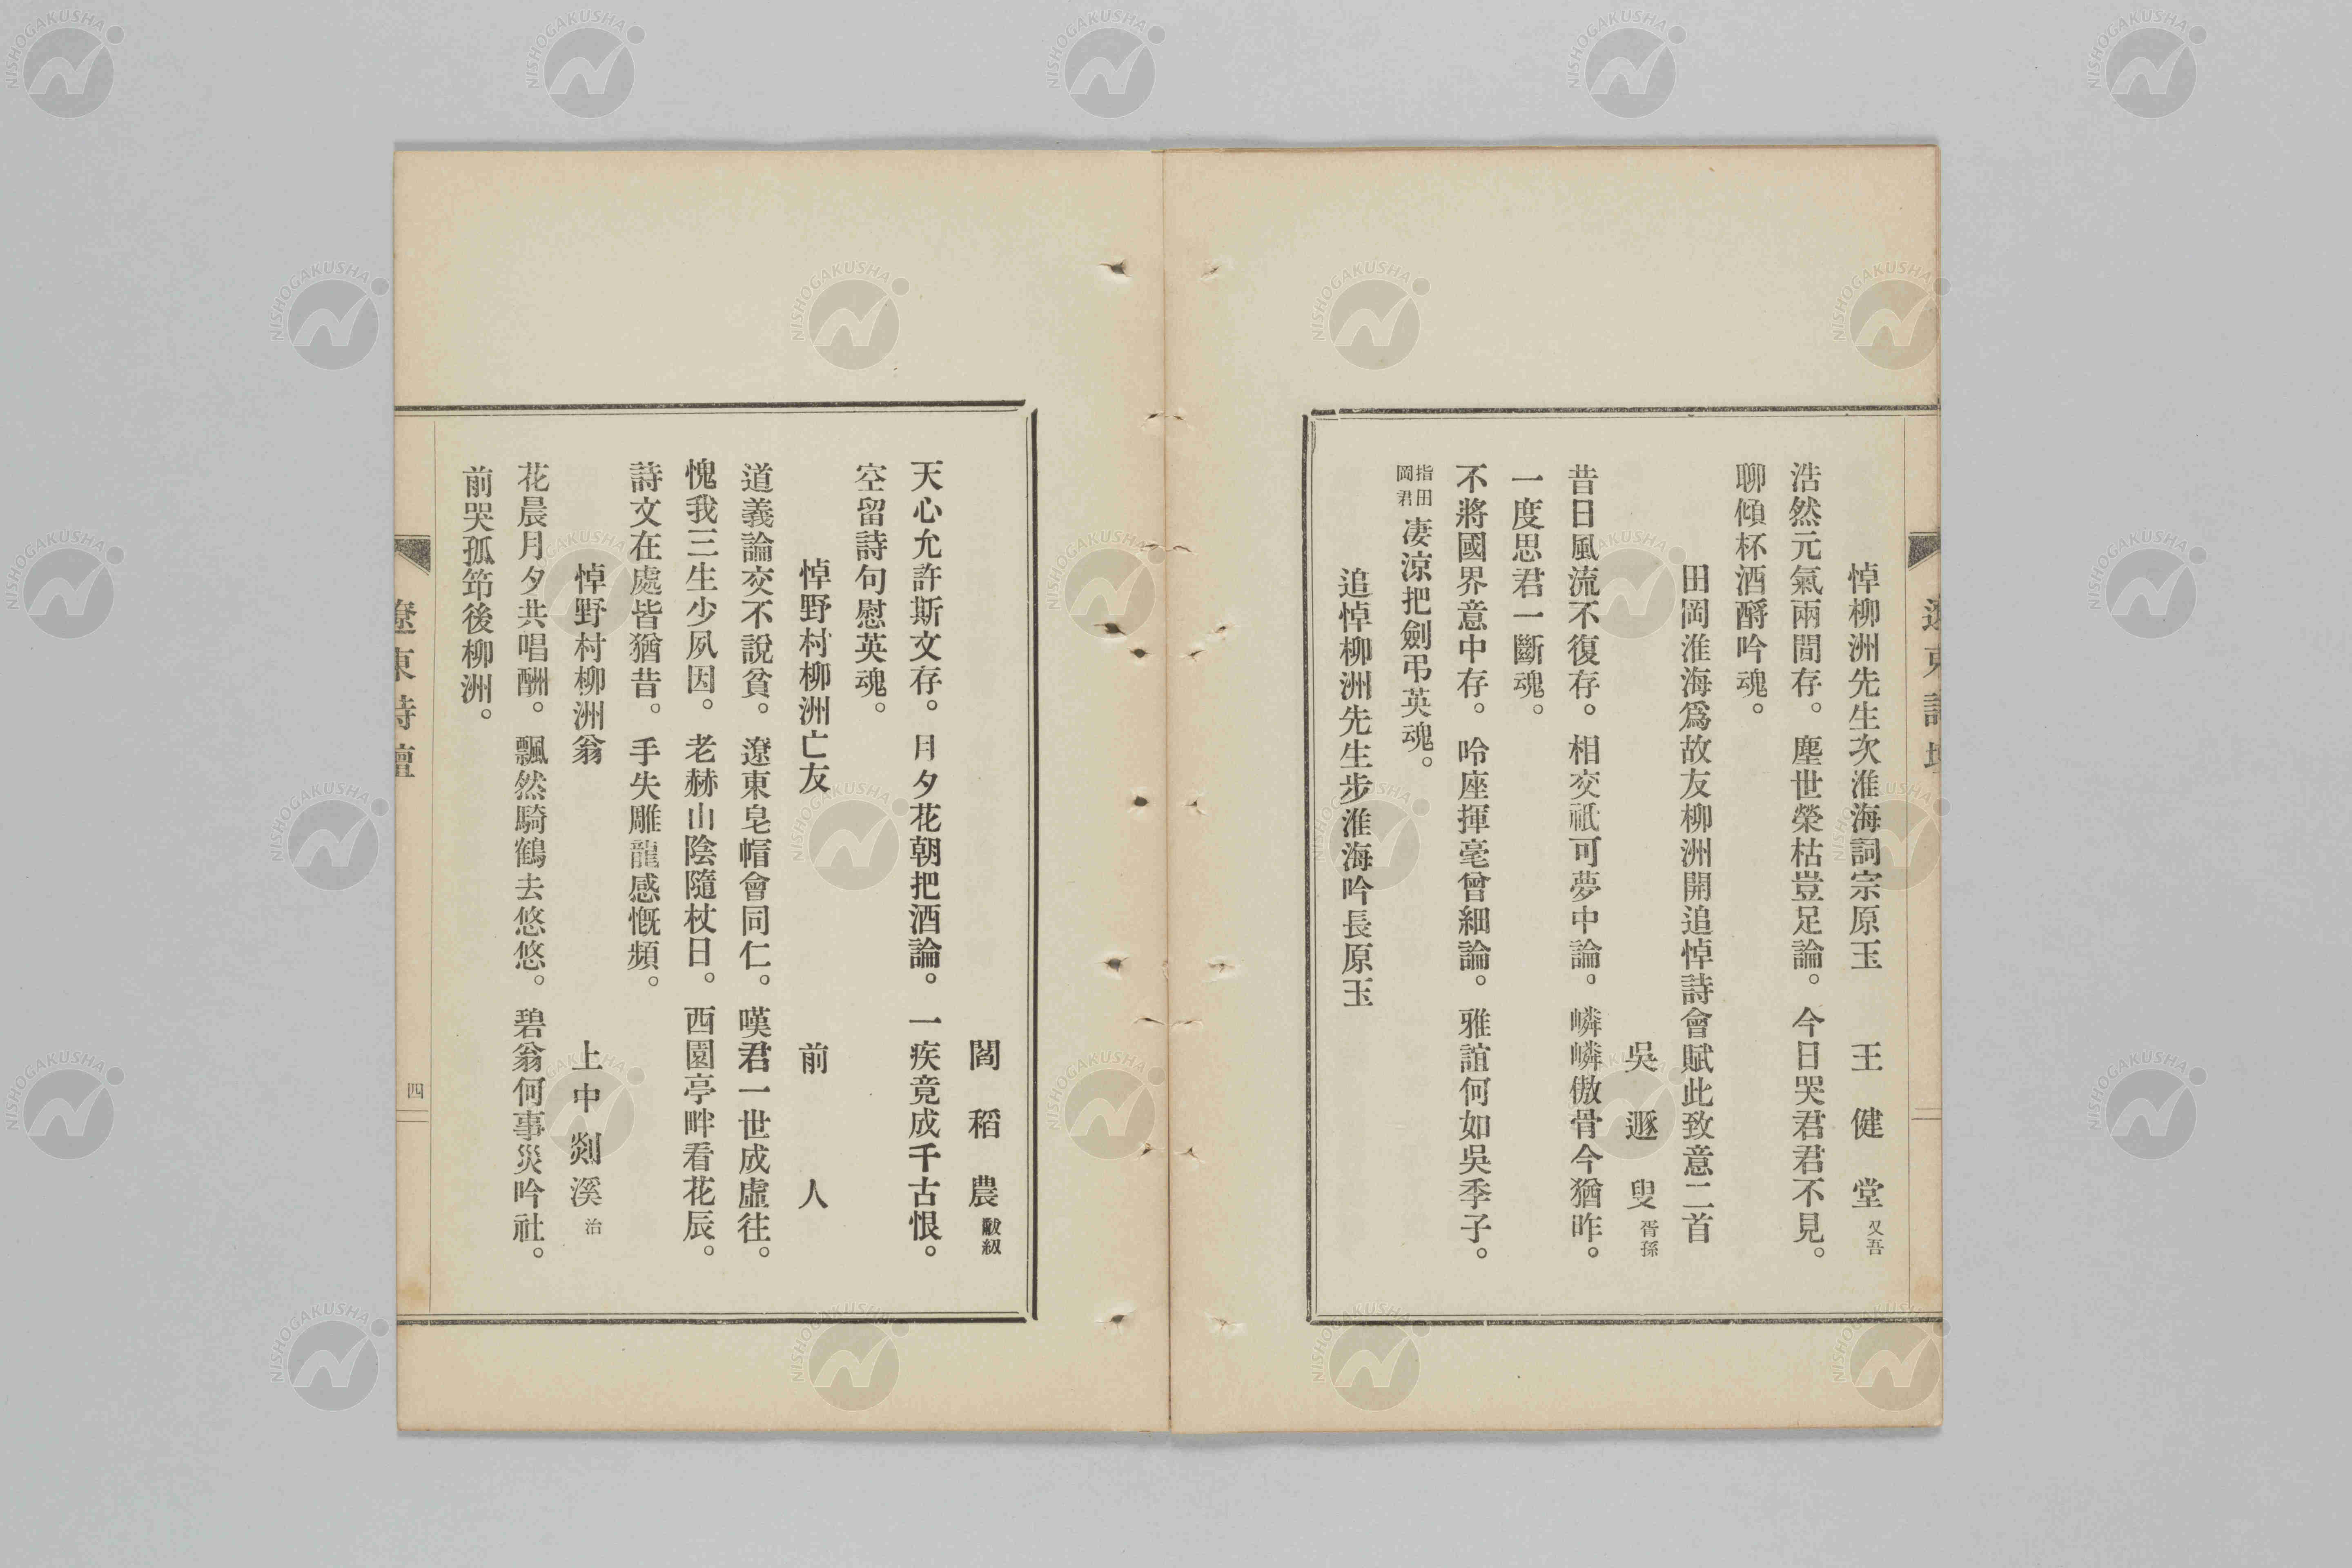 悼柳洲先生次淮海詞宗原玉　王健堂 又吾
浩然元氣兩間存。塵世榮枯豈足論。今日哭君君不見。
聊傾杯酒酹吟魂。
田岡淮海爲故友柳洲開追悼詩會賦此致意二首
吳遯叟 胥孫
昔日風流不復存。相交祇可夢中論。嶙嶙傲骨今猶昨。
一度思君一斷魂。
不將國界意中存。吟座揮毫曾細論。雅誼何如吳季子。
指田岡君 凄涼把劍弔英魂。
追悼柳洲先生步淮海吟長原玉
閻稻農 黻紉
天心允許斯文存。月夕花朝把酒論。一疾竟成千古恨。
空留詩句慰英魂。
悼野村柳洲亡友　前人
道義論交不說貧。遼東皂帽會同仁。嘆君一世成虛往。
愧我三生少夙因。老赫山陰隨杖日。西園亭畔看花辰。
詩文在處皆猶昔。手失雕龍感慨頻。
悼野村柳洲翁　上中剡溪 治
花晨月夕共唱酬。飄然騎鶴去悠悠。碧翁何事災吟社。
前哭孤筇後柳洲。
遼東詩壇
四
NISHOGAKUSHA